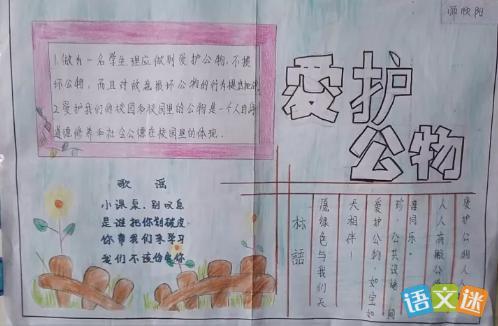 爱护
公物
1.做为一名学生理应做到爱护公物,不损
坏公物,而且对故意损坏公物的行为提出批评
2.爱护我们的校园和校园里的公物是一个人的
道德修养和社会公德在校园里的体现.
歌谣
小课桌,别叹息
是谁把你划破皮
你帮我们来学习
我们不该伤害你
爱护公物人
人人有,搬公
喜同乐。
珍,公共设施
爱护公物,如宝如
天相伴!
愿绿色与我们天
标语
语文迷